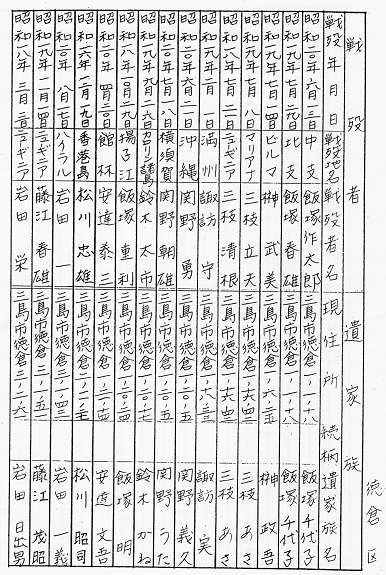 徳倉区
戦歿者 遺家族
戦歿年月日 戦歿地名 戦歿者名 現住所 続柄 遺家族名
昭和二〇年 六月 三日 中支 飯塚作太郎 三島市徳倉一、一八 飯塚千代子
昭和一九年 月二九日 北支 飯塚春雄 三島市徳倉一、一八 飯塚千代子
昭和一九年 七月一四日 ビルマ 榊 武美 三島市徳倉 榊 政吾
昭和一九年 七月 八日 マリアナ 三枝立夫 三島市徳倉 三枝 あさ
昭和一九年 八月 ニューギニア 三枝清根 三島市徳倉 三枝 あさ
昭和 年 月 一日 満州 諏訪 守 三島市徳倉 諏訪 実
昭和二〇年 月 沖縄 関野 勇 三島市徳倉 関野義久
昭和二〇年 七月一八日 横須賀 関野朝雄 三島市徳倉 関野うた
昭和一九年 九月二六日 カロリン諸島 鈴木太市 三島市徳倉 鈴木かね
昭和一八年 月二九日 揚子江 飯塚重利 三島市徳倉 飯塚 明
昭和二〇年 四月 館林 安達泰三 三島市徳倉 安達文吾
昭和一六年 一二月一九日 香港島 松川忠雄 三島市徳倉 松川昭司
昭和二〇年 八月一七日 ハイラル 岩田 一 三島市徳倉 岩田一義
昭和一九年 一月一四日 ニューギニア 藤江春雄 三島市徳倉 藤江茂昭
昭和一八年 三月 ニューギニア 岩田 栄 三島市徳倉 岩田日出男